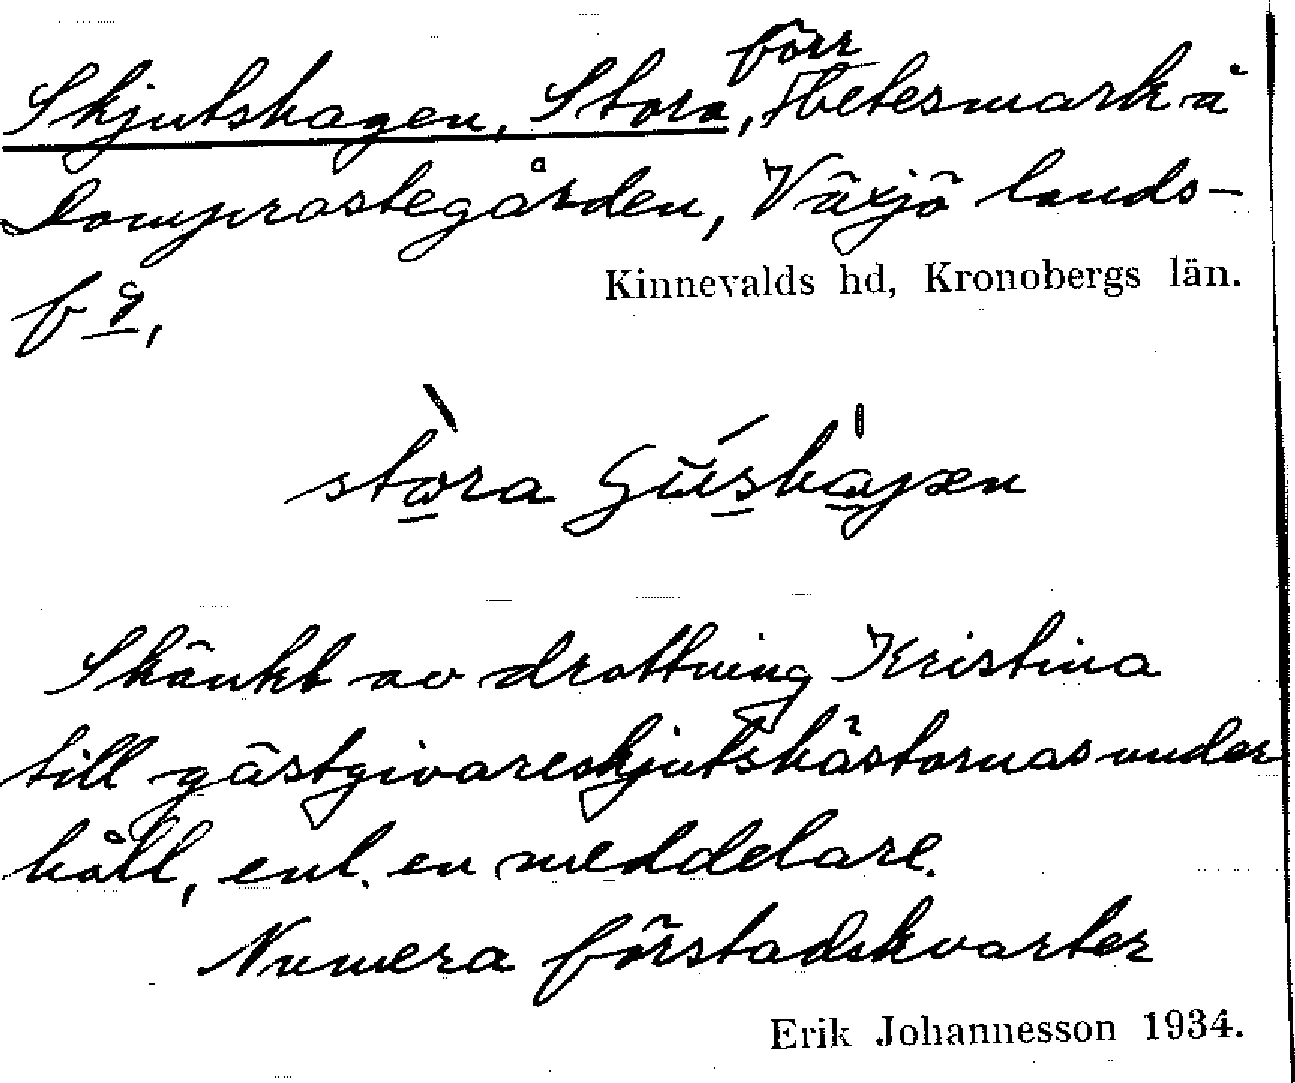 Skjutshagen, Stora, förr betesmark å
Domprostegården, Växjö lands-
f g,
Kinnevalds hd, Kronobergs län.
stora
Skänkt av drottning Kristina
till gästgivareskjutshästornas under
håll, enl. en meddelare.
Numera förstadskvarter
Erik Johannesson 1934.